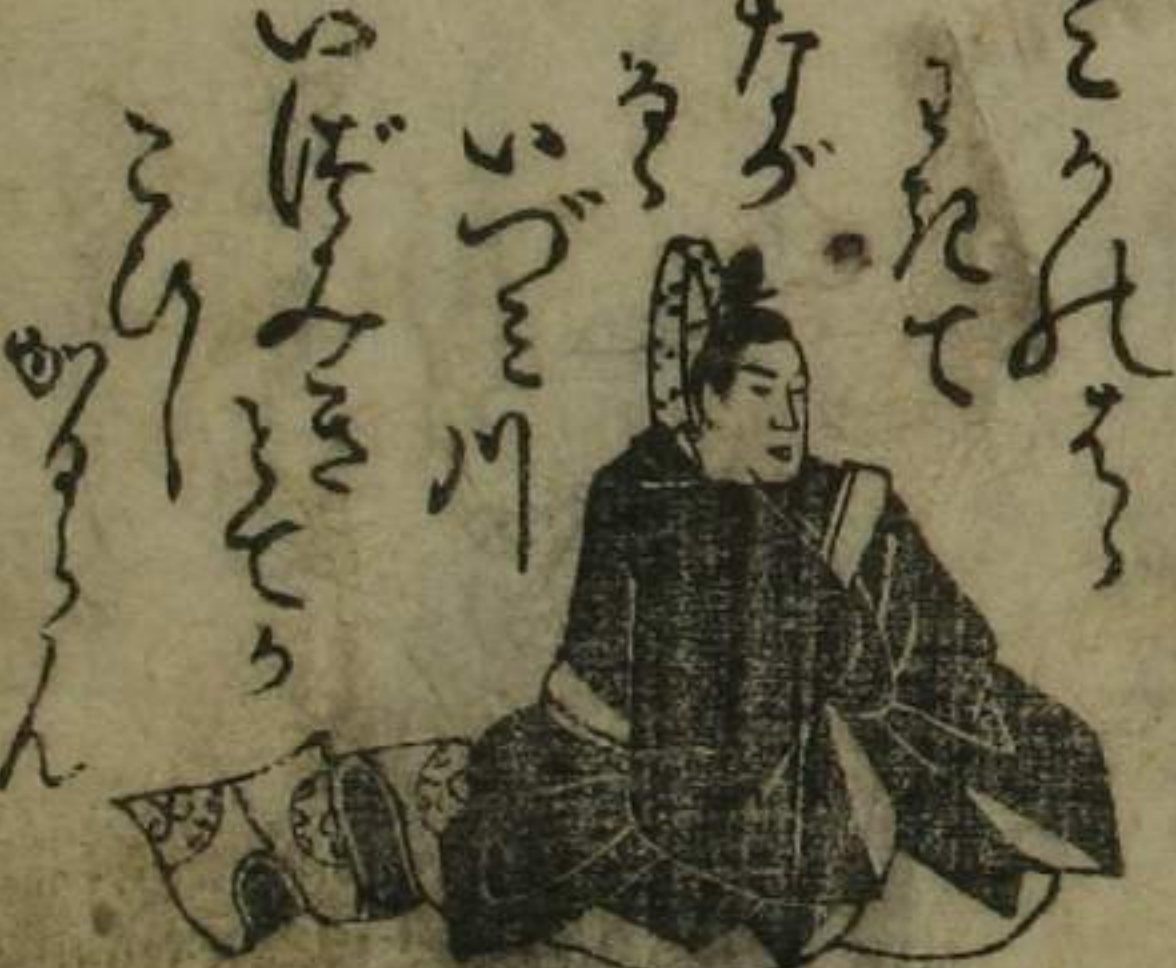 みかのはら
わきて
なが
るゝ
いづみ川
いづみき
とてか
こひし
かるらん